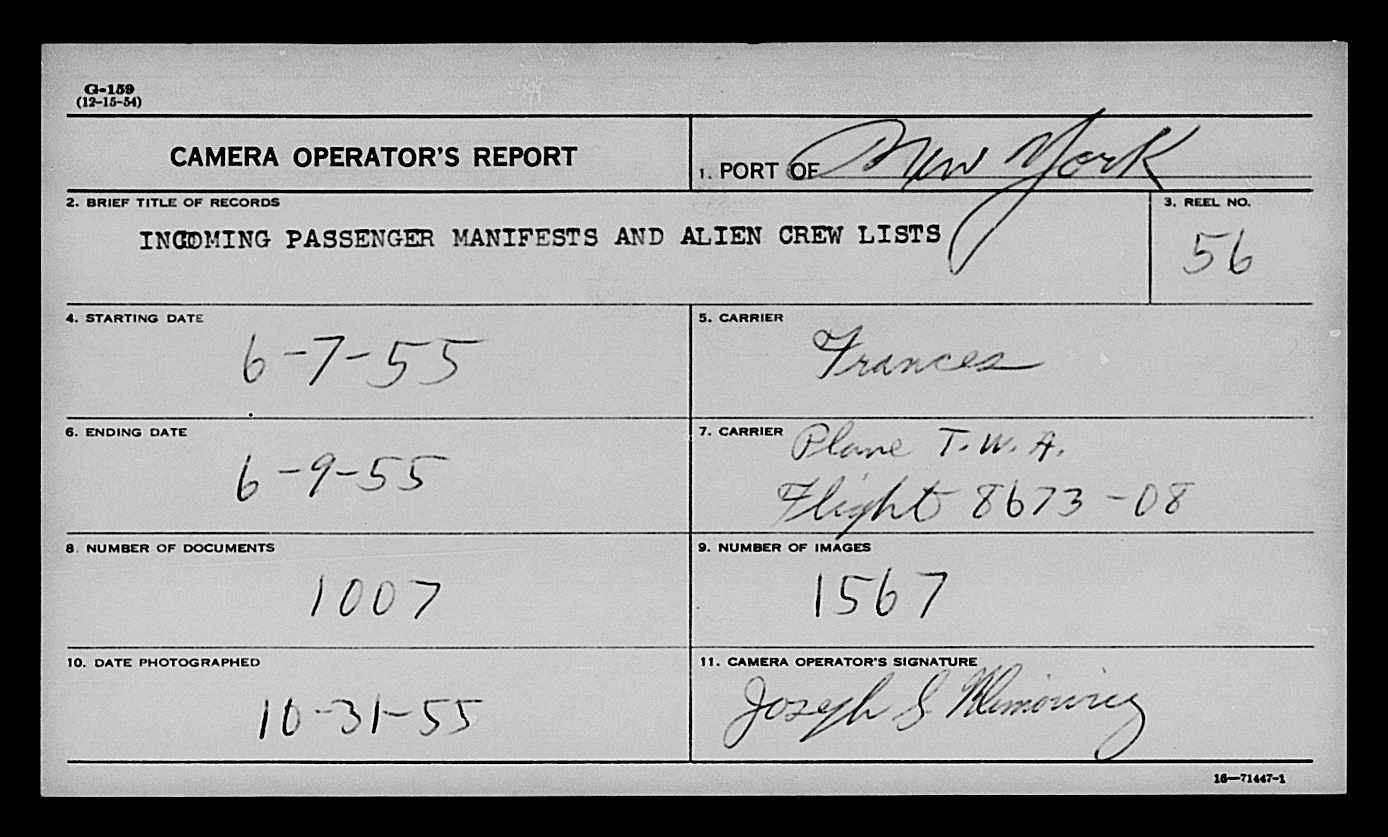 G-159
(12-15-54)
CAMERA OPERATOR'S REPORT
1. PORT OF New York
2. BRIEF TITLE OF RECORDS
INCOMING PASSENGER MANIFESTS AND ALIEN CREW LISTS
3. REEL NO.
56
4. STARTING DATE
6-7-55
5. CARRIER
Frances
6. ENDING DATE
6-9-55
7. CARRIER Plane T.W.A.
Flight 8673-08
8. NUMBER OF DOCUMENTS
1007
9. NUMBER OF IMAGES
1567
10. DATE PHOTOGRAPHED
10-31-55
11. CAMERA OPERATOR'S SIGNATURE
Joseph S.
16—71447-1